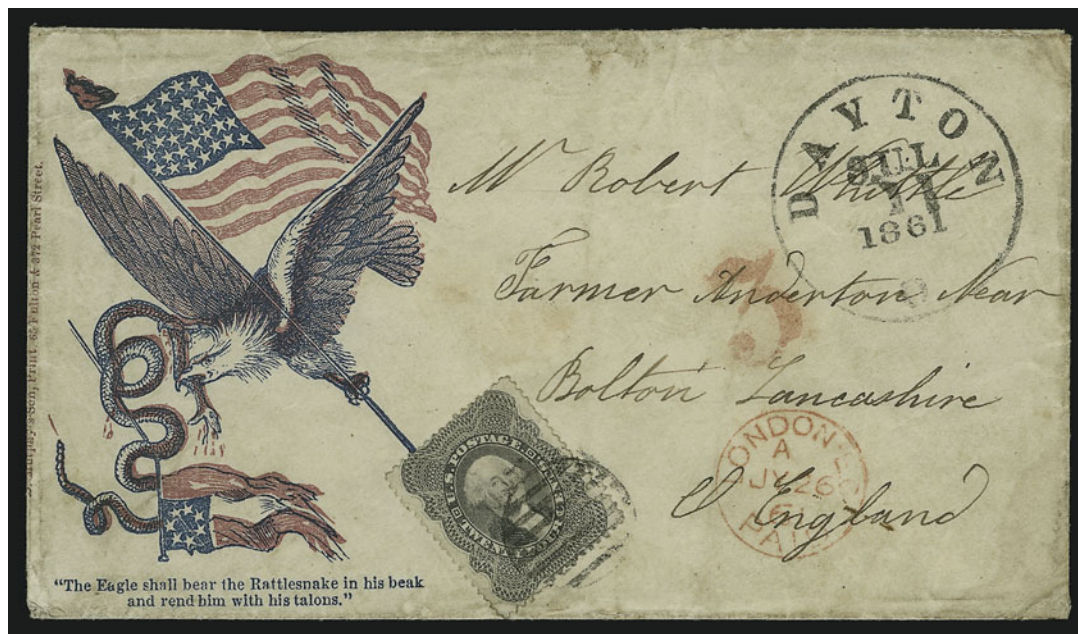 Murphy's Son, Print 65 Fulton & 372 Pearl Street.
DAYTON
JUL
1861
Mr Robert Whittle
Farmer Anderton Near
3
Bolton Lancashire
England
LONDON
A
JY 26
PAID
U.S. POSTAGE
"The Eagle shall bear the Rattlesnake in his beak
and rend him with his talons."